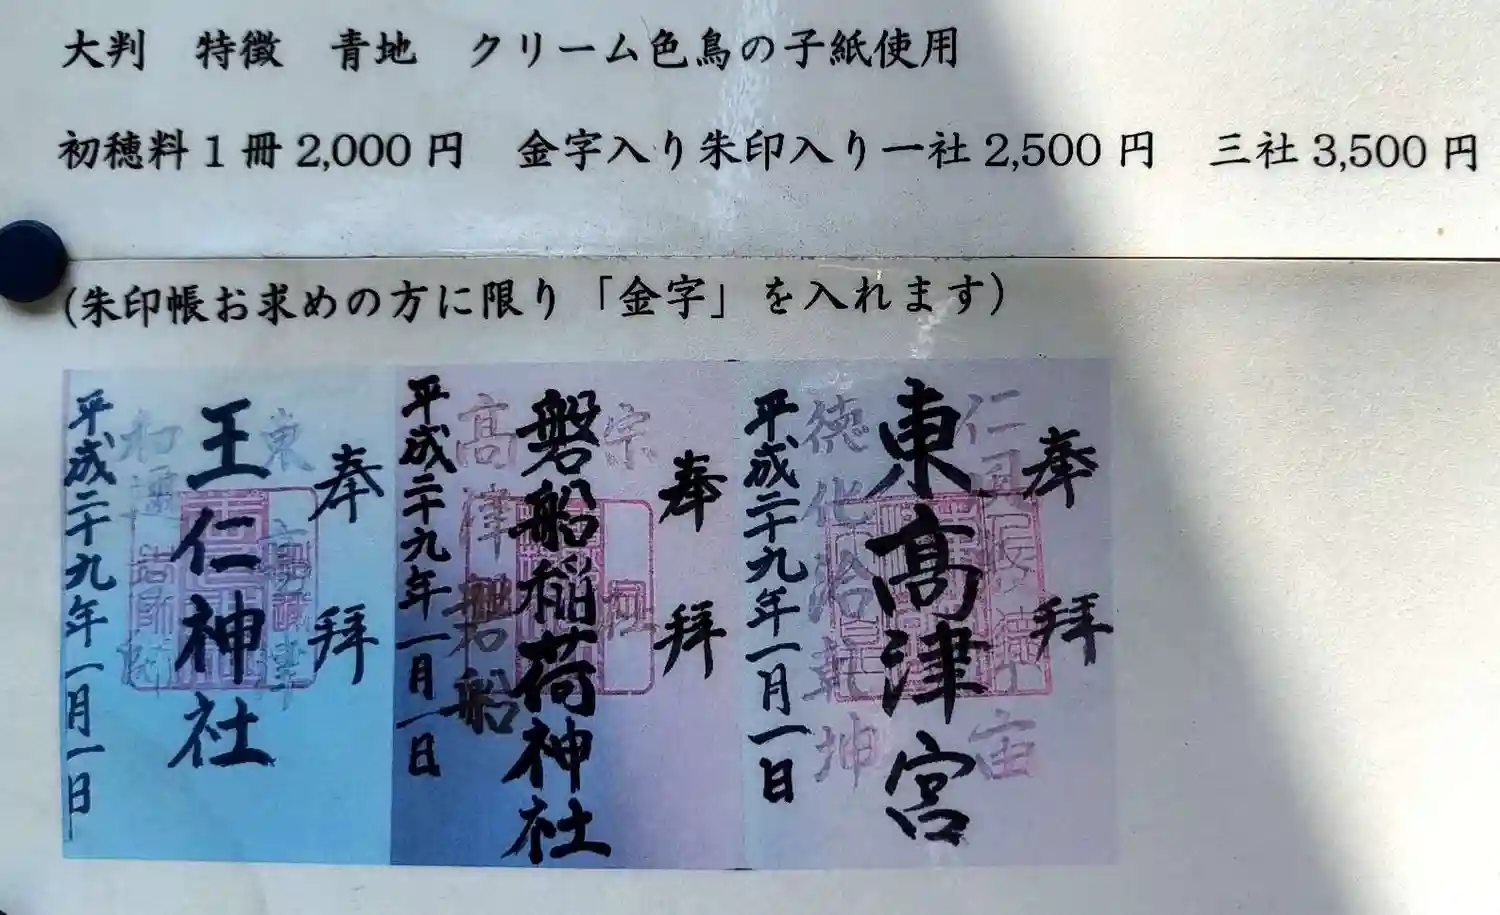 大判　特徴　青地　クリーム色鳥の子紙使用
初穂料1冊2,000円　金字入り朱印入り一社2,500円　三社3,500円
(朱印帳お求めの方に限り「金字」を入れます)
奉拝
東高津宮
徳化洽乾坤
平成二十九年一月一日
奉拝
磐船稲荷神社
高津
磐船
平成二十九年一月一日
奉拝
東高津
王仁神社
平成二十九年一月一日